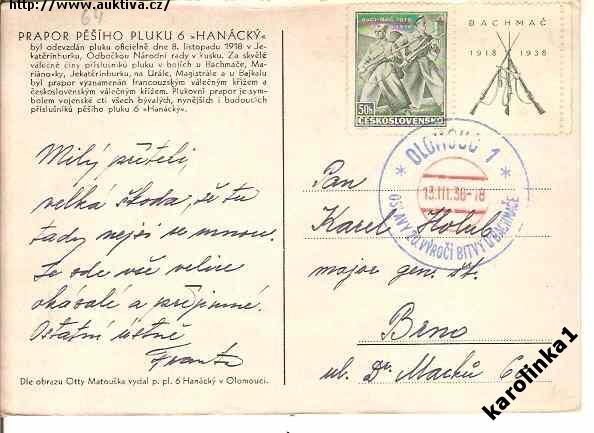 Zdroj: www.auktiva.cz/
64
PRAPOR PĚŠÍHO PLUKU 6 »HANÁCKÝ«
byl odevzdán pluku oficielně dne 8. listopadu 1918 v Je-
katěrinburku, Odbočkou Národní rady v Rusku. Za skvělé
válečné činy příslušníků pluku v bojích u Bachmače, Ma-
riánovky, Jekatěrinburku, na Urále, Magistrále a u Bajkalu
byl prapor vyznamenán francouzským válečným křížem a
československým válečným křížem. Plukovní prapor je sym-
bolem vojenské cti všech bývalých, nynějších i budoucích
příslušníků pěšího pluku 6 »Hanácký«.
Milý příteli,
velká škoda, že tu
tady nejsi se mnou.
Je zde vše velice
okázalé a příjemné.
Ostatní ústně
Franta
Dle obrazu Otty Matouška vydal p. pl. 6 Hanácký v Olomouci.
BACHMAČ 1918
50h
ČESKOSLOVENSKO
BACHMAČ
1918 1938
* OLOMOUC 1 *
13.III.38-18
OSLAVY 20. VÝROČÍ BITVY U BACHMAČE
Pan
Karel Holub
major gen. št.
Brno
ul. Dr. Macků
karolinka1